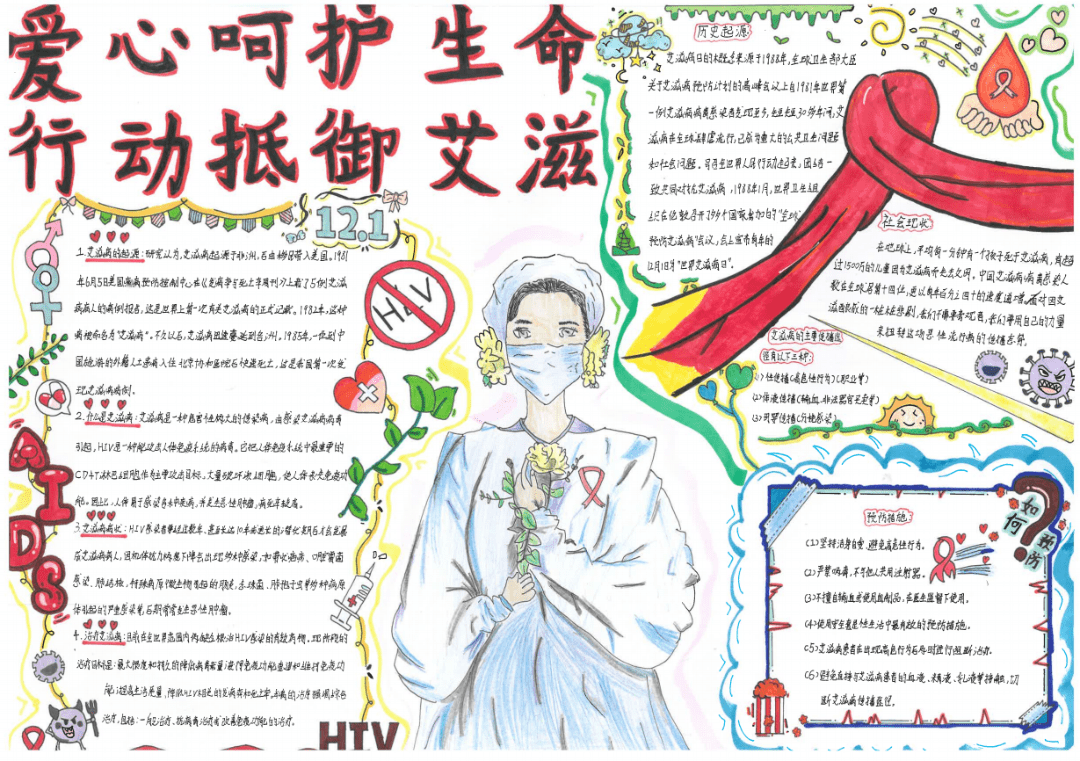 爱心呵护生命
行动抵御艾滋
12.1
1.艾滋病的起源:研究认为,艾滋病起源于非洲,后由移民带入美国。1981
年6月5日美国疾病预防控制中心在《发病率与死亡率周刊》上登载了5例艾滋
病病人的病例报告,这是世界上第一次有关艾滋病的正式记载。1982年,这种
疾病被命名为"艾滋病"。不久以后,艾滋病迅速蔓延到各洲。1985年,一位到中
国旅游的外籍人士患病入住北京协和医院后很快死亡,这是我国第一次发
现艾滋病病例。
2.什么是艾滋病:艾滋病是一种危害性极大的传染病,由感染艾滋病病毒
引起,HIV是一种能攻击人体免疫系统的病毒。它把人体免疫系统中最重要的
CD4T淋巴细胞作为主要攻击目标,大量破坏该细胞,使人体丧失免疫功
能。因此,人体易于感染各种疾病,并发生恶性肿瘤,病死率较高。
3.艾滋病病状:HIV
4.治疗艾滋病:目前在全世界范围内仍缺乏根治HIV感染的有效药物。现阶段的
治疗目标是:最大限度和持久的降低病毒载量;获得免疫功能重建和维持免疫功
能;提高生活质量;降低HIV相关的发病率和死亡率。本病的治疗强调综合
治疗,包括:一般治疗、抗病毒治疗
AIDS
HIV
HIV
历史起源:
艾滋病日的概念来源于1988年,全球卫生部大臣
关于艾滋病预防计划的高峰会议上。自1981年世界第
一例艾滋病病毒感染者发现至今,短短30多年间,艾
滋病在全球肆虐流行,已成为重大的公共卫生问题
和社会问题。
致共同对抗艾滋病,1988年1月,世界卫生组
织在伦敦召开了
预防艾滋病"会议,会上宣布每年的
12月1日为"世界艾滋病日"。
社会现状:
在地球上,平均每一分钟有一个孩子死于艾滋病,有超
过1500万的儿童因为艾滋病而失去父母。中国艾滋病病毒感染人
数在全球居第十四位,更以每年百分之四十的速度递增。面对因艾
滋而致的一桩桩悲剧,
来扭转这场恶性流行病的传播态势。
艾滋病的主要传播途
径有以下三种:
(1)性传播(高危性行为)(职业等)
(2)体液传播(输血、非法器官买卖等)
(3)母婴传播(分娩感染)
如何预防?
预防措施:
(1)坚持洁身自爱,避免高危性行为。
(2)严禁吸毒,不与他人共用注射器。
(3)不擅自输血和使用血制品,在医生监督下使用。
(4)使用安全套是性生活中最有效的预防措施。
(5)艾滋病患者在出现高危行为后及时进行阻断治疗。
(6)避免直接与艾滋病患者的血液、精液、乳液等接触,切
断艾滋病传播途径。